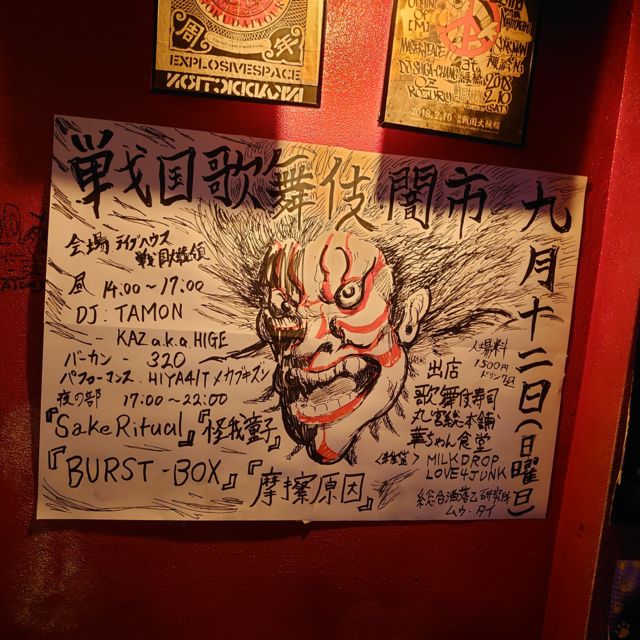 周年
EXPLOSIVESPACE
2018.2.10
戦国大統領
戦国歌舞伎闇市
九月十二日(日曜日)
会場 ライブハウス
戦国大統領
昼 14:00~17:00
DJ:TAMON
KAZ a.k.a HIGE
バーカン - 320
パフォーマンス、HIYA41T メカブキズン
夜の部 17:00~22:00
『SakeRitual』『怪我童子』
『BURST-BOX』『摩擦原因』
入場料
1500円
ドリンク込
出店
歌舞伎寿司
丸宮総本舗
華ちゃん食堂
MILKDROP
LOVE+JUNK
総合洒落乙研究所
ムゥ・タイ